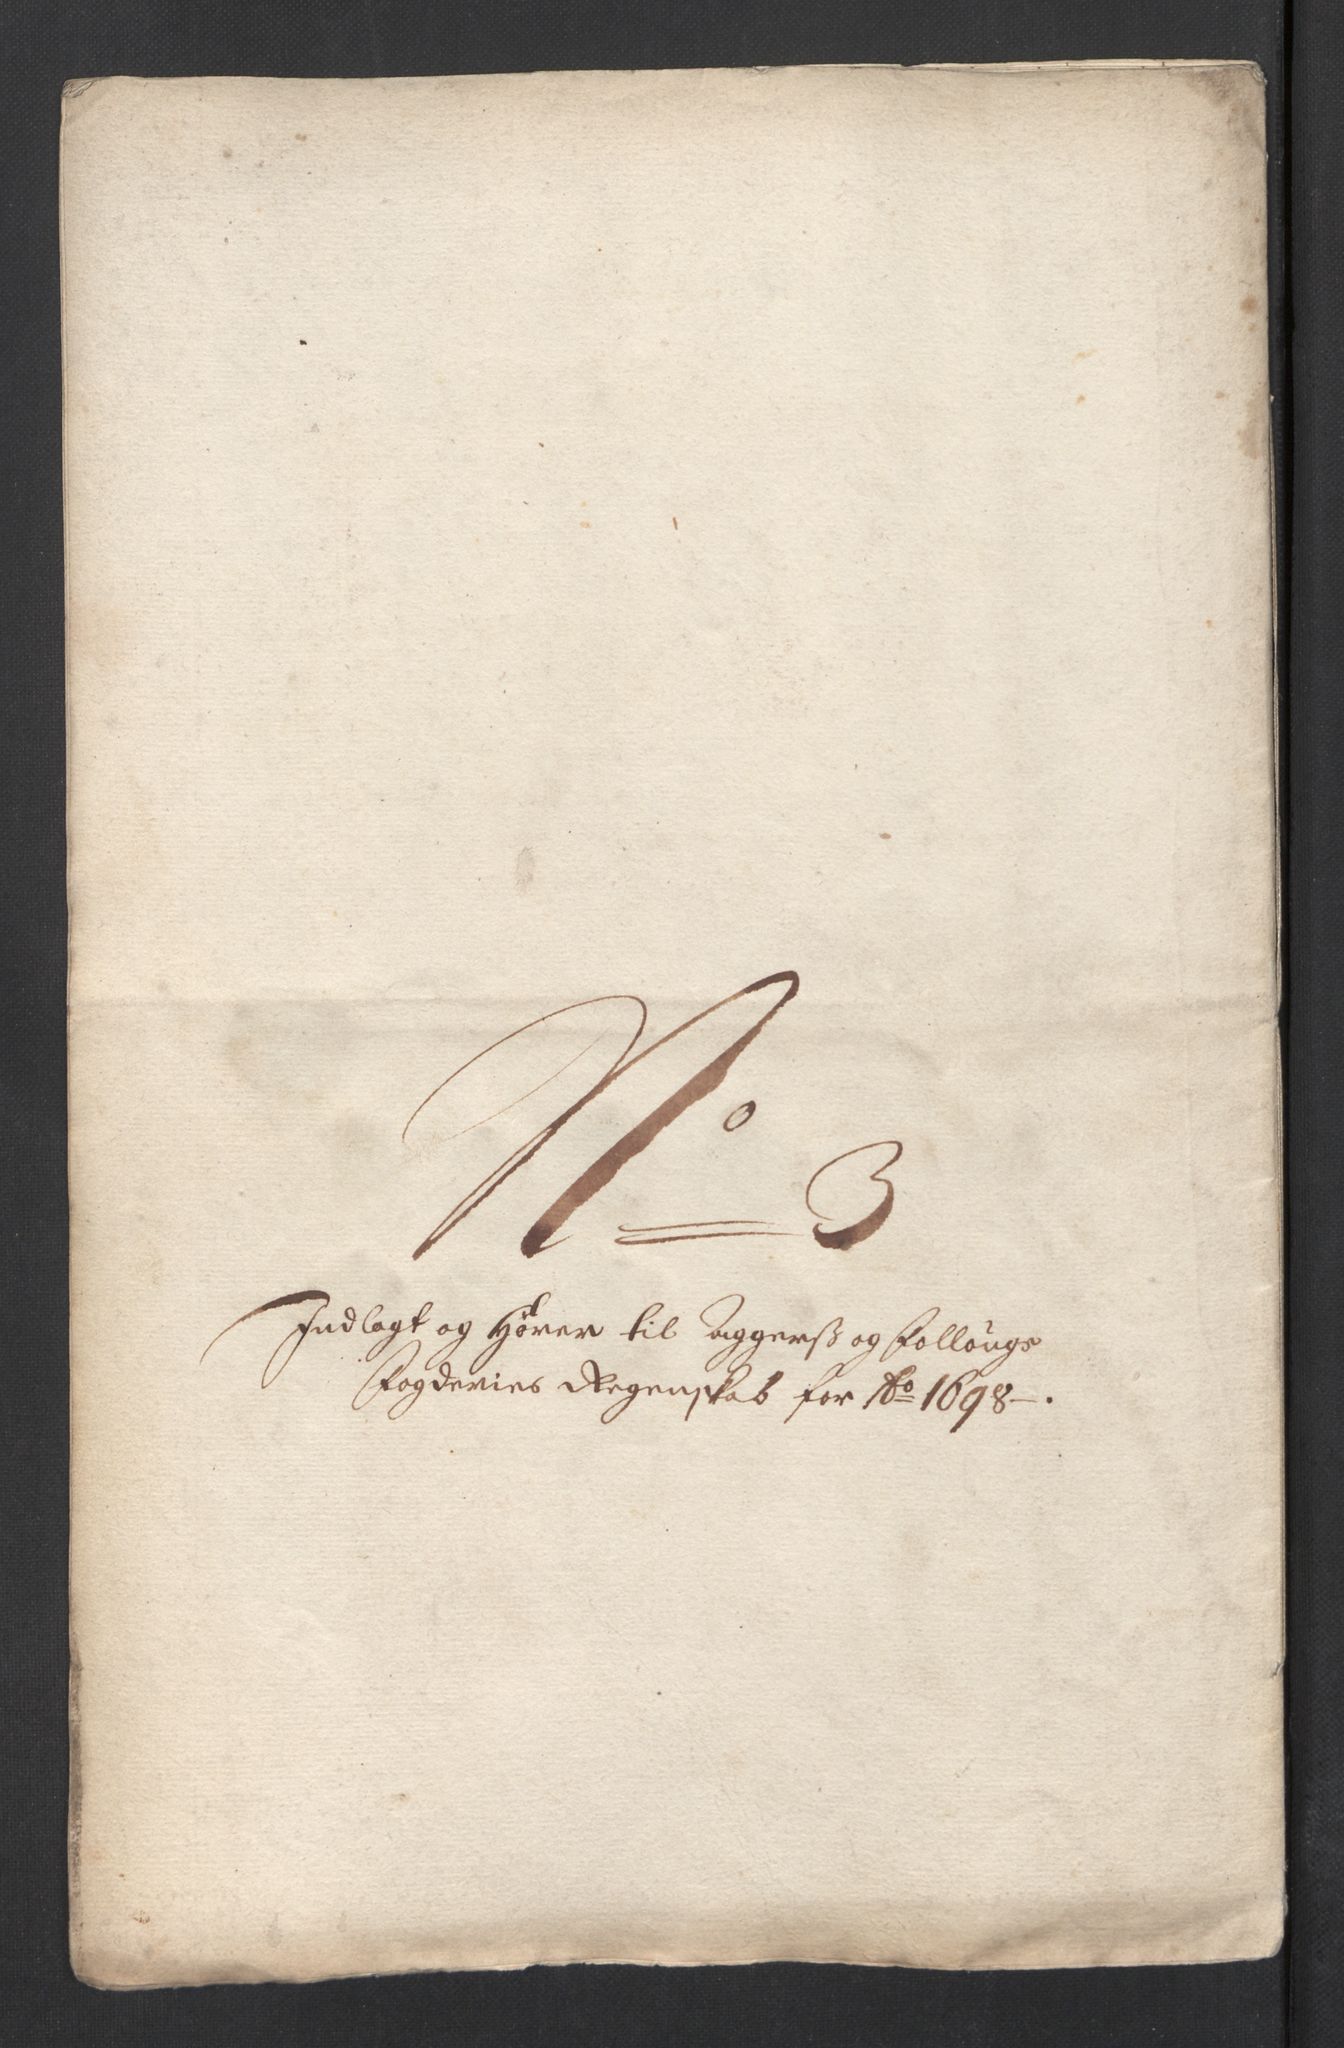 No 3
Indlagt og Hörer til Aggerß og Follougs
Fogderies Regenskab for Ao 1698.